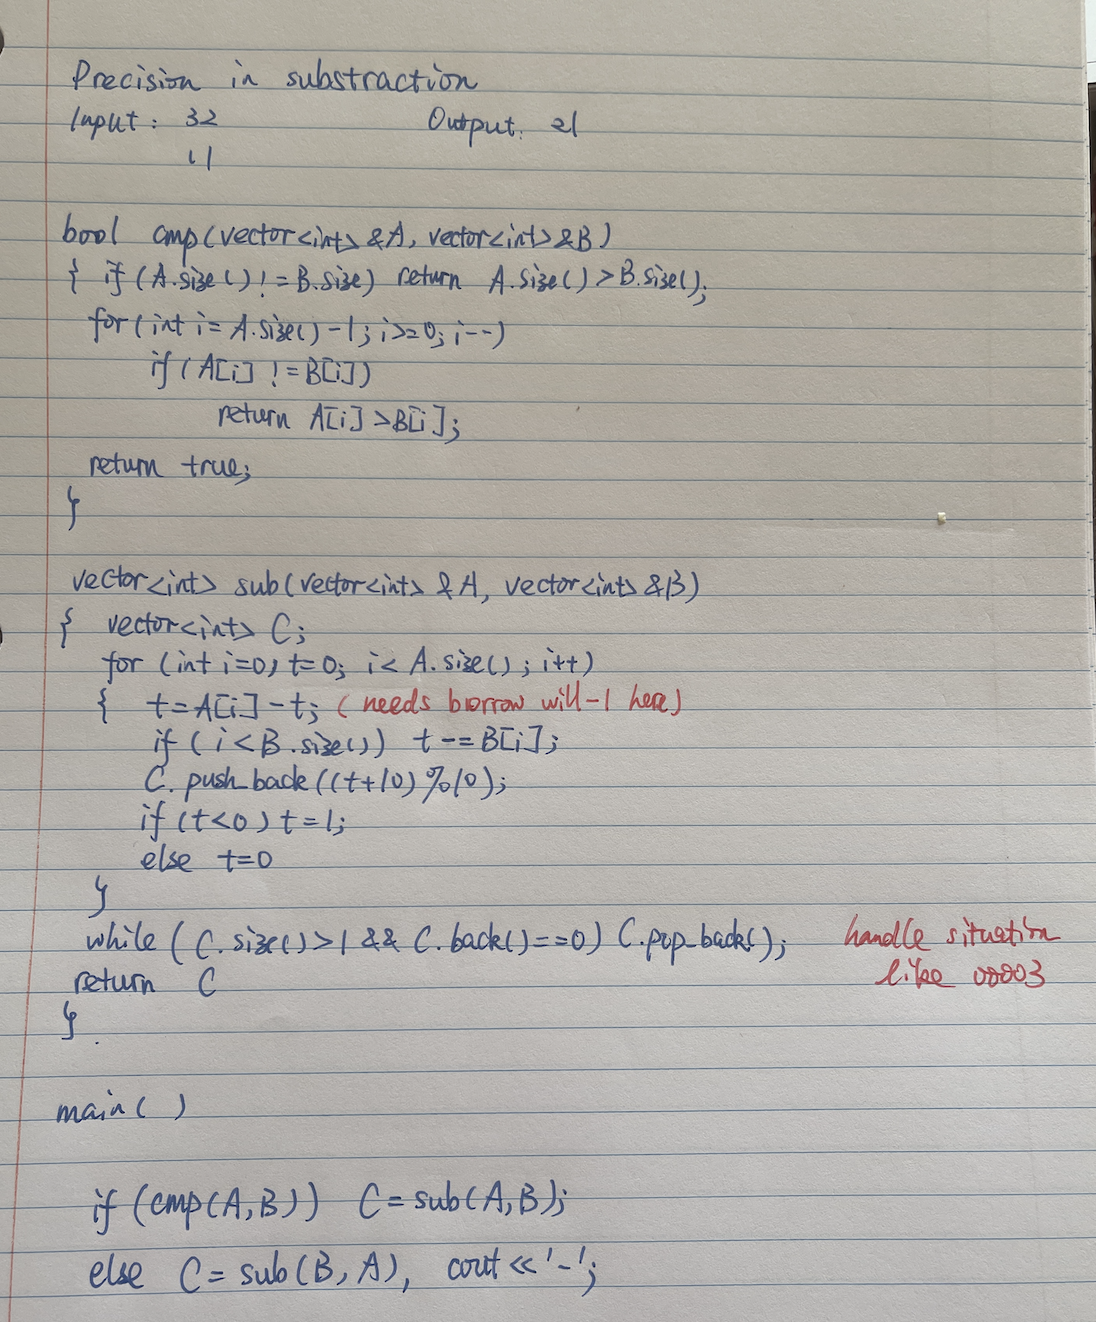 Precision in substraction
Input: 32 Output: 21
11
bool cmp(vector<int> &A, vector<int> &B)
{ if (A.size() != B.size) return A.size() > B.size();
for (int i = A.size() -1; i>=0; i--)
if (A[i] != B[i])
return A[i] > B[i];
return true;
}
vector<int> sub(vector<int> &A, vector<int> &B)
{ vector<int> C;
for (int i=0, t=0; i < A.size(); i++)
{ t = A[i] - t; (needs borrow will -1 here)
if (i < B.size()) t -= B[i];
C.push_back((t+10) %10);
if (t<0) t=1;
else t=0
}
while (C.size()>1 && C.back()==0) C.pop_back(); handle situation
like 00003
return C
}
main( )
if (cmp(A,B)) C = sub(A,B);
else C = sub(B, A), cout << '-';